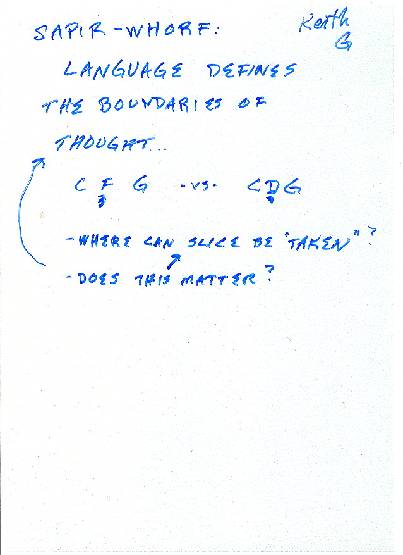 Keith
G
SAPIR-WHORF:
LANGUAGE DEFINES
THE BOUNDARIES OF
THOUGHT...
C F G -VS- C D G
-WHERE CAN SLICE BE "TAKEN"?
-DOES THIS MATTER?